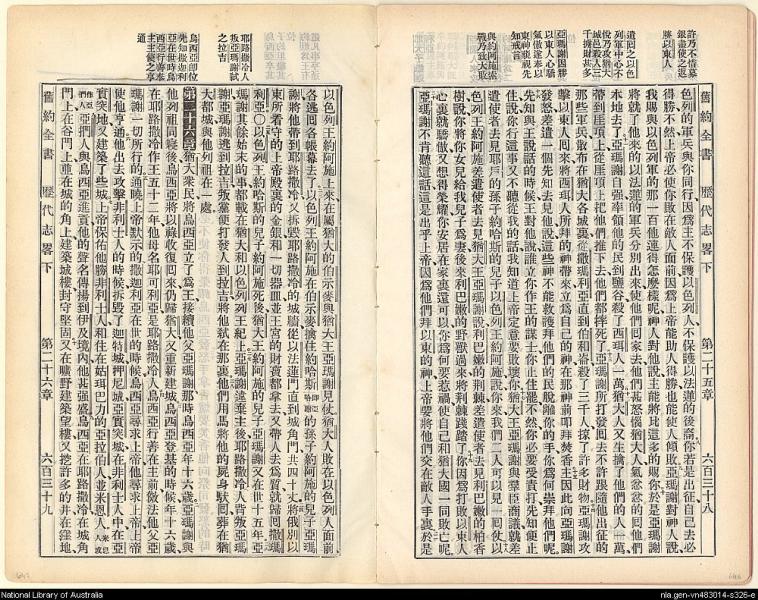 許乃不惜募
銀盡使之返
勝以東人
遣回之以色
列軍中心不
悅乃攻猶大
城邑殺人三
千擄財甚多
亞瑪謝因勝
以東人心驕
氣傲遂奉以
東神藐視先
知戒言
與約阿施索
戰乃致大敗
舊約全書 歷代志畧下 第二十五章 六百三十八
色列的軍兵與你同行因爲主不保護以色列人不保護以法蓮的後裔你若是出征自己去必
得勝不然上帝必使你敗在敵人面前因爲上帝能助人得勝也能使人傾敗亞瑪謝對神人說
我賜與以色列軍的那一百他連得怎麽樣呢神人對他說主能將比這多的賜你於是亞瑪謝
將就了他來的以法蓮的軍兵分別出來使他們回家去他們甚怒惱猶大人氣忿忿的回他們
本地去了亞瑪謝自强率領他的民到鹽谷殺了西珥人一萬猶大人又生擒了他們的人一萬
帶到崖頂上從崖頂上把他們推下去他們都摔死了亞瑪謝所打發回去不許跟隨他出征的
那些軍兵散布在猶大各城裏從撒瑪利亞直到伯和崙殺了三千人掠了許多財物亞瑪謝攻
擊以東人回來將西珥人所拜的神帶來立爲自己的神在那神前叩拜焚香主因此向亞瑪謝
發怒差遣一個先知去見他說這些神不能救護拜他們的民脫離你的手你爲何崇拜他們呢
先知與王說話的時候王對他說誰立你作王的謀士你止住罷不然你必要受責打先知便止
住說你行這事又不聽從我的話我知道上帝定意要敗壞你猶大王亞瑪謝與羣臣商議就差
遣使者去見耶戶的孫子約哈斯的兒子以色列王約阿施說你來我們二人可以見一回仗以
色列王約阿施差遣使者去見猶大王亞瑪謝說利巴嫩的荆棘差遣使者去見利巴嫩的柏香
樹說你將你女兒給我兒子爲妻後來利巴嫩的野獸過來將荆棘踐踏了你因爲打敗以東人
心裏就驕傲又想得榮耀你安居在家裏還可以你爲何要惹禍使自己和猶大國一同敗亡呢
亞瑪謝不肯聽這話這是出乎上帝因爲他們拜以東的神上帝要將他們交在敵人手裏於是
耶路撒冷人
叛亞瑪謝弒
之拉吉
烏西亞卽位
先知撒迦利
亞在世時烏
西亞行善奉
主主使之亨
通
以色列王約阿施上來在屬猶大的伯示麥與猶大王亞瑪謝見仗猶大人敗在以色列人面前
各逃回各帳幕去了以色列王約阿施在伯示麥擒住約哈斯的孫子約阿施的兒子亞瑪
謝將他帶到耶路撒冷又拆毀耶路撒冷的城牆從以法蓮門直到城角門共四十丈將俄別以
東所看守的上帝殿裏的金銀和一切器皿並王宮的財寶都拿去又帶人去爲質就歸回撒瑪
利亞〇以色列王約哈斯的兒子約阿施死後猶大王約阿施的兒子亞瑪謝又在世十五年亞
瑪謝其餘始末的事都載在猶大和以色列列王紀上亞瑪謝違棄主後耶路撒冷人背叛亞
瑪謝亞瑪謝逃到拉吉叛黨便打發人到拉吉將他弒在那裏他們用馬將他的屍身馱回葬在猶
大都城與他列祖在一處
第二十六章猶大衆民將烏西亞立了爲王接續他父亞瑪謝那時烏西亞年十六歲亞瑪謝與
他列祖同寢後烏西亞將以祿收復回來仍歸猶大又重新建城烏西亞登基的時候年十六歲
在耶路撒冷作王五十二年他母名耶可利亞是耶路撒冷人烏西亞行善在主前傚法他父亞
瑪謝一切所行的通曉上帝默示的撒迦利亞在世的時候烏西亞尋求上帝他尋求主上帝上帝
使他亨通他出去攻擊非利士人的時候拆毀了迦特城押尼城亞實突城在非利士人中在亞
實突地又建築了些城上帝保佑他勝非利士人和住在姑珥巴力的亞拉伯人並米恩人
亞捫人與烏西亞進貢他的聲名傳揚到伊及境內他甚强盛烏西亞在耶路撒冷在城角
門上在谷門上並在城的角上建築城樓封守堅固又在曠野建築望樓又挖許多的井在窪地
舊約全書 歷代志畧下 第二十六章 六百三十九
National Library of Australia
nla.gen-vn483014-s326-e